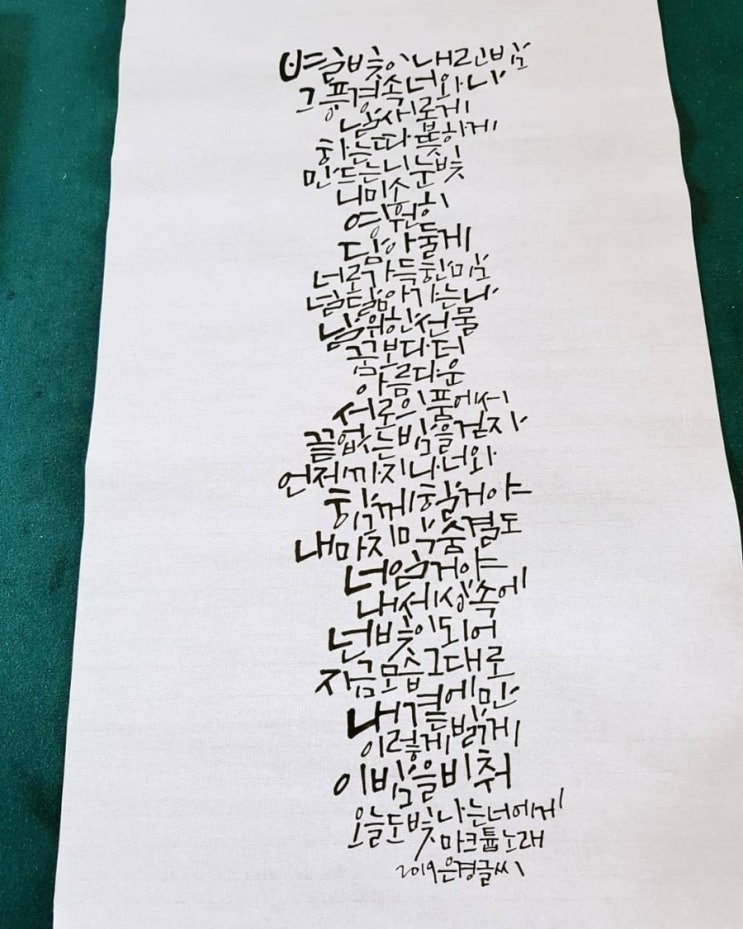 별빛이 내린 밤
그 풍경 속 너와 나
날 새롭게
하는 따뜻하게
만드는 니 눈빛
니 미소
영원히
담아둘게
너로 가득한 맘
널 닮아가는 나
날 위한 선물
꿈보다 더
아름다운
서로의 품에서
끝없는 밤을 걷자
언제까지나 너와
함께할 거야
내 마지막 숨결도
너일 거야
내 세상 속에
넌 빛이 되어
지금 모습 그대로
내 곁에만
이렇게 밝게
이 밤을 비춰
오늘도 빛나는 너에게
마크툽 노래
2019 은경글씨